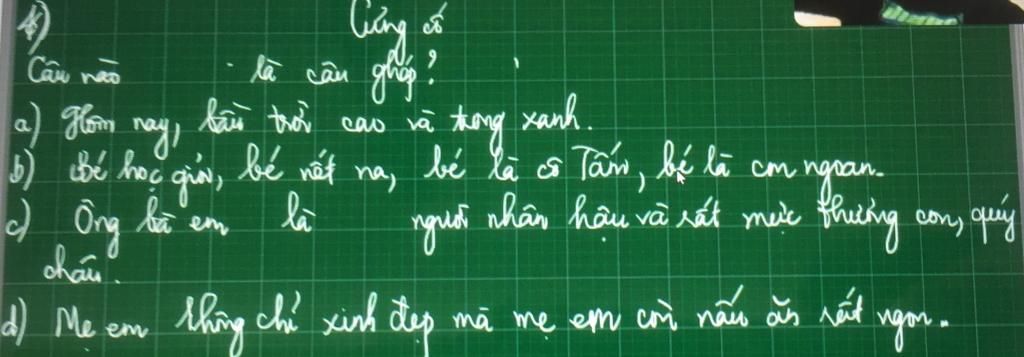 4) Củng cố
Câu nào là câu ghép?
a) Hôm nay, bầu trời cao và trong xanh.
b) Bé học giỏi, bé nết na, bé là cô Tấm, bé là con ngoan.
c) Ông bà em là người nhân hậu và rất mực thương con, quý
cháu.
d) Mẹ em không chỉ xinh đẹp mà mẹ em còn nấu ăn rất ngon.